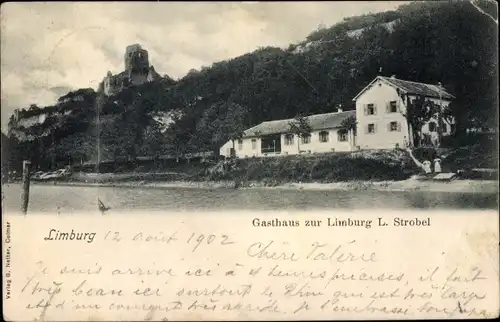 Gasthaus zur Limburg L. Strobel
Limburg 12 Août 1902
Chère Valérie
Je suis arrivé ici à 4 heures précises, il fait
très beau ici surtout le Rhin qui est très haut
et d'un courant très rapide. Je t'embrasse
Verlag B. Hatter, Colmar